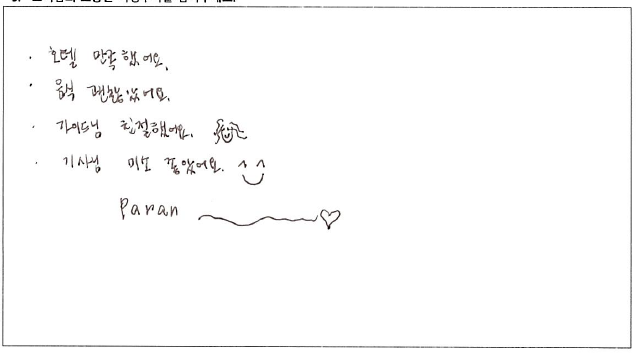 · 호텔 만족했어요.
· 음식 괜찮았어요.
· 가이드님 친절했어요.
· 기사님 미소 좋았어요. ^^
Paran ~♡